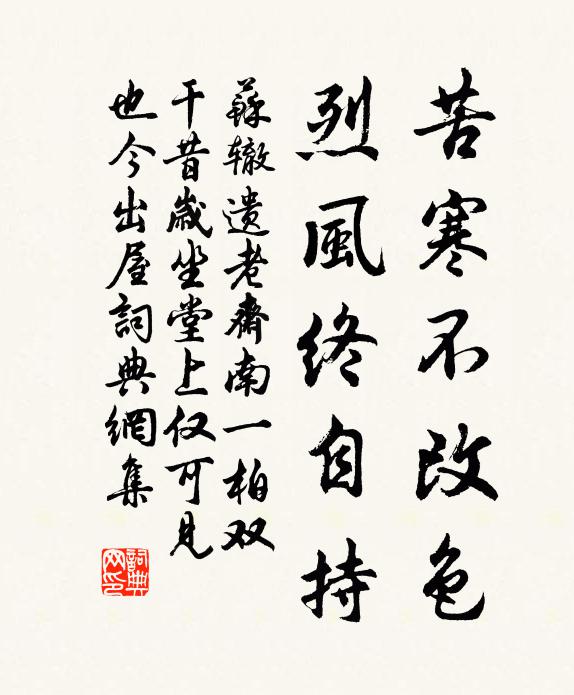 苦寒不改色
烈風终自持
蘇辙遺老齋南一柏双
干昔歲坐堂上仅可見
也今出屋詞典網集
詞典
网印